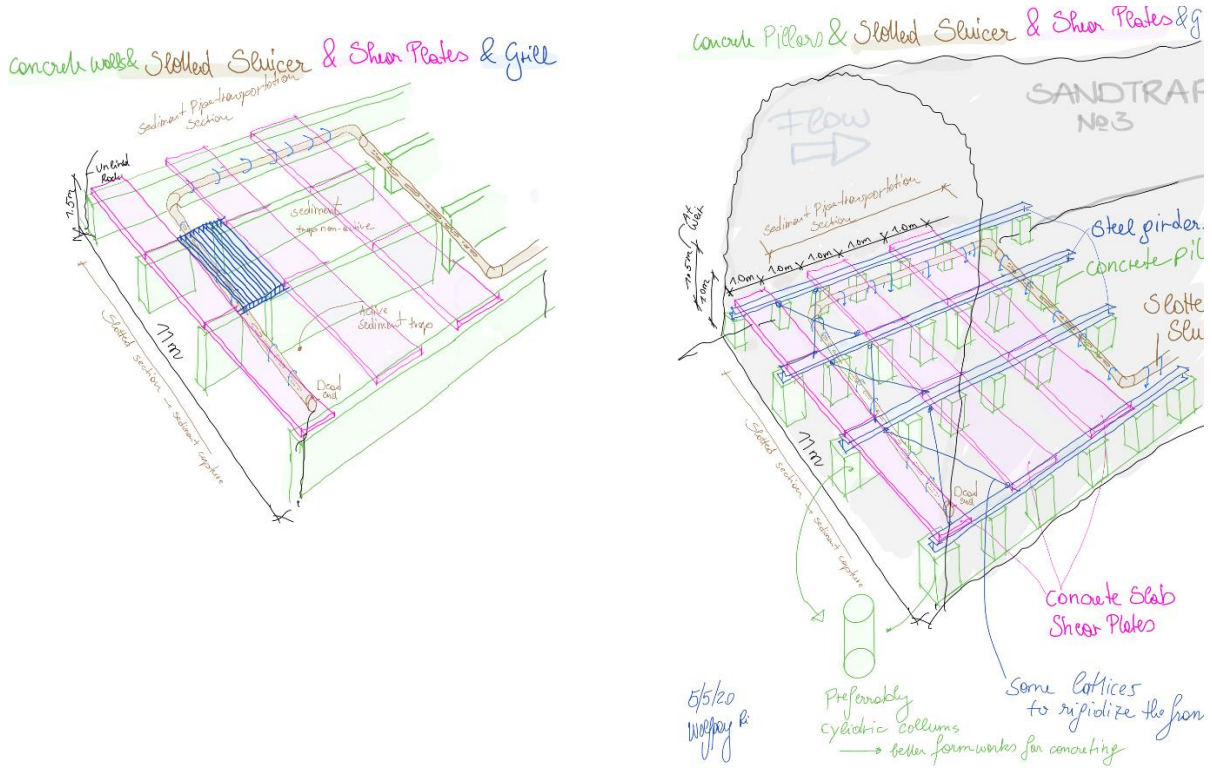 concrete walls & Slotted Sluicer & Shear Plates & Grill
sediment Pipe-transportation
section
Unlined
Rock
1.5m
sediment
trap non-active
Active
sediment trap
11m
Dead
end
Slotted section → sediment capture
concrete Pillars & Slotted Sluicer & Shear Plates & G
SANDTRAP
№3
Flow
sediment Pipe-transportation
section
1.0m
1.0m
1.0m
1.0m
1.0m
~1.5m
At
Weir
1.0m
Steel girders
concrete pil
Slotte
Slu
11m
Dead
end
Slotted section → sediment capture
Concrete Slab
Shear Plates
Some lattices
to rigidize the fram
Preferrably
cylidric collums
→ better formworks for concreting
5/5/20